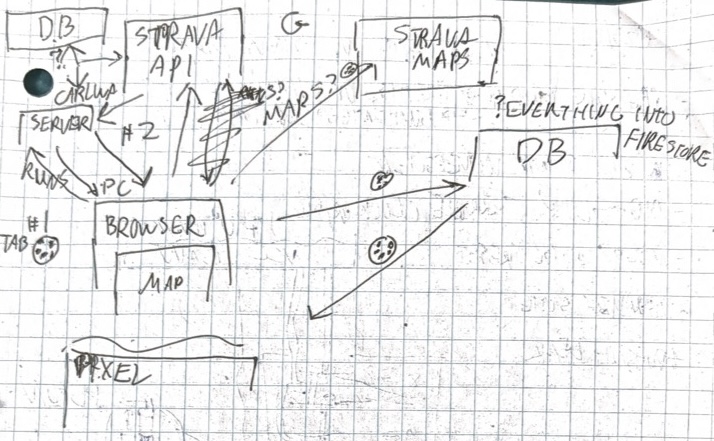 DB
STRAVA
API
G
STRAVA
MAPS
?
SERVER
#2
MAPS?
?EVERYTHING INTO
FIRESTORE
DB
RUNS
PC
#1
TAB
BROWSER
MAP
PIXEL